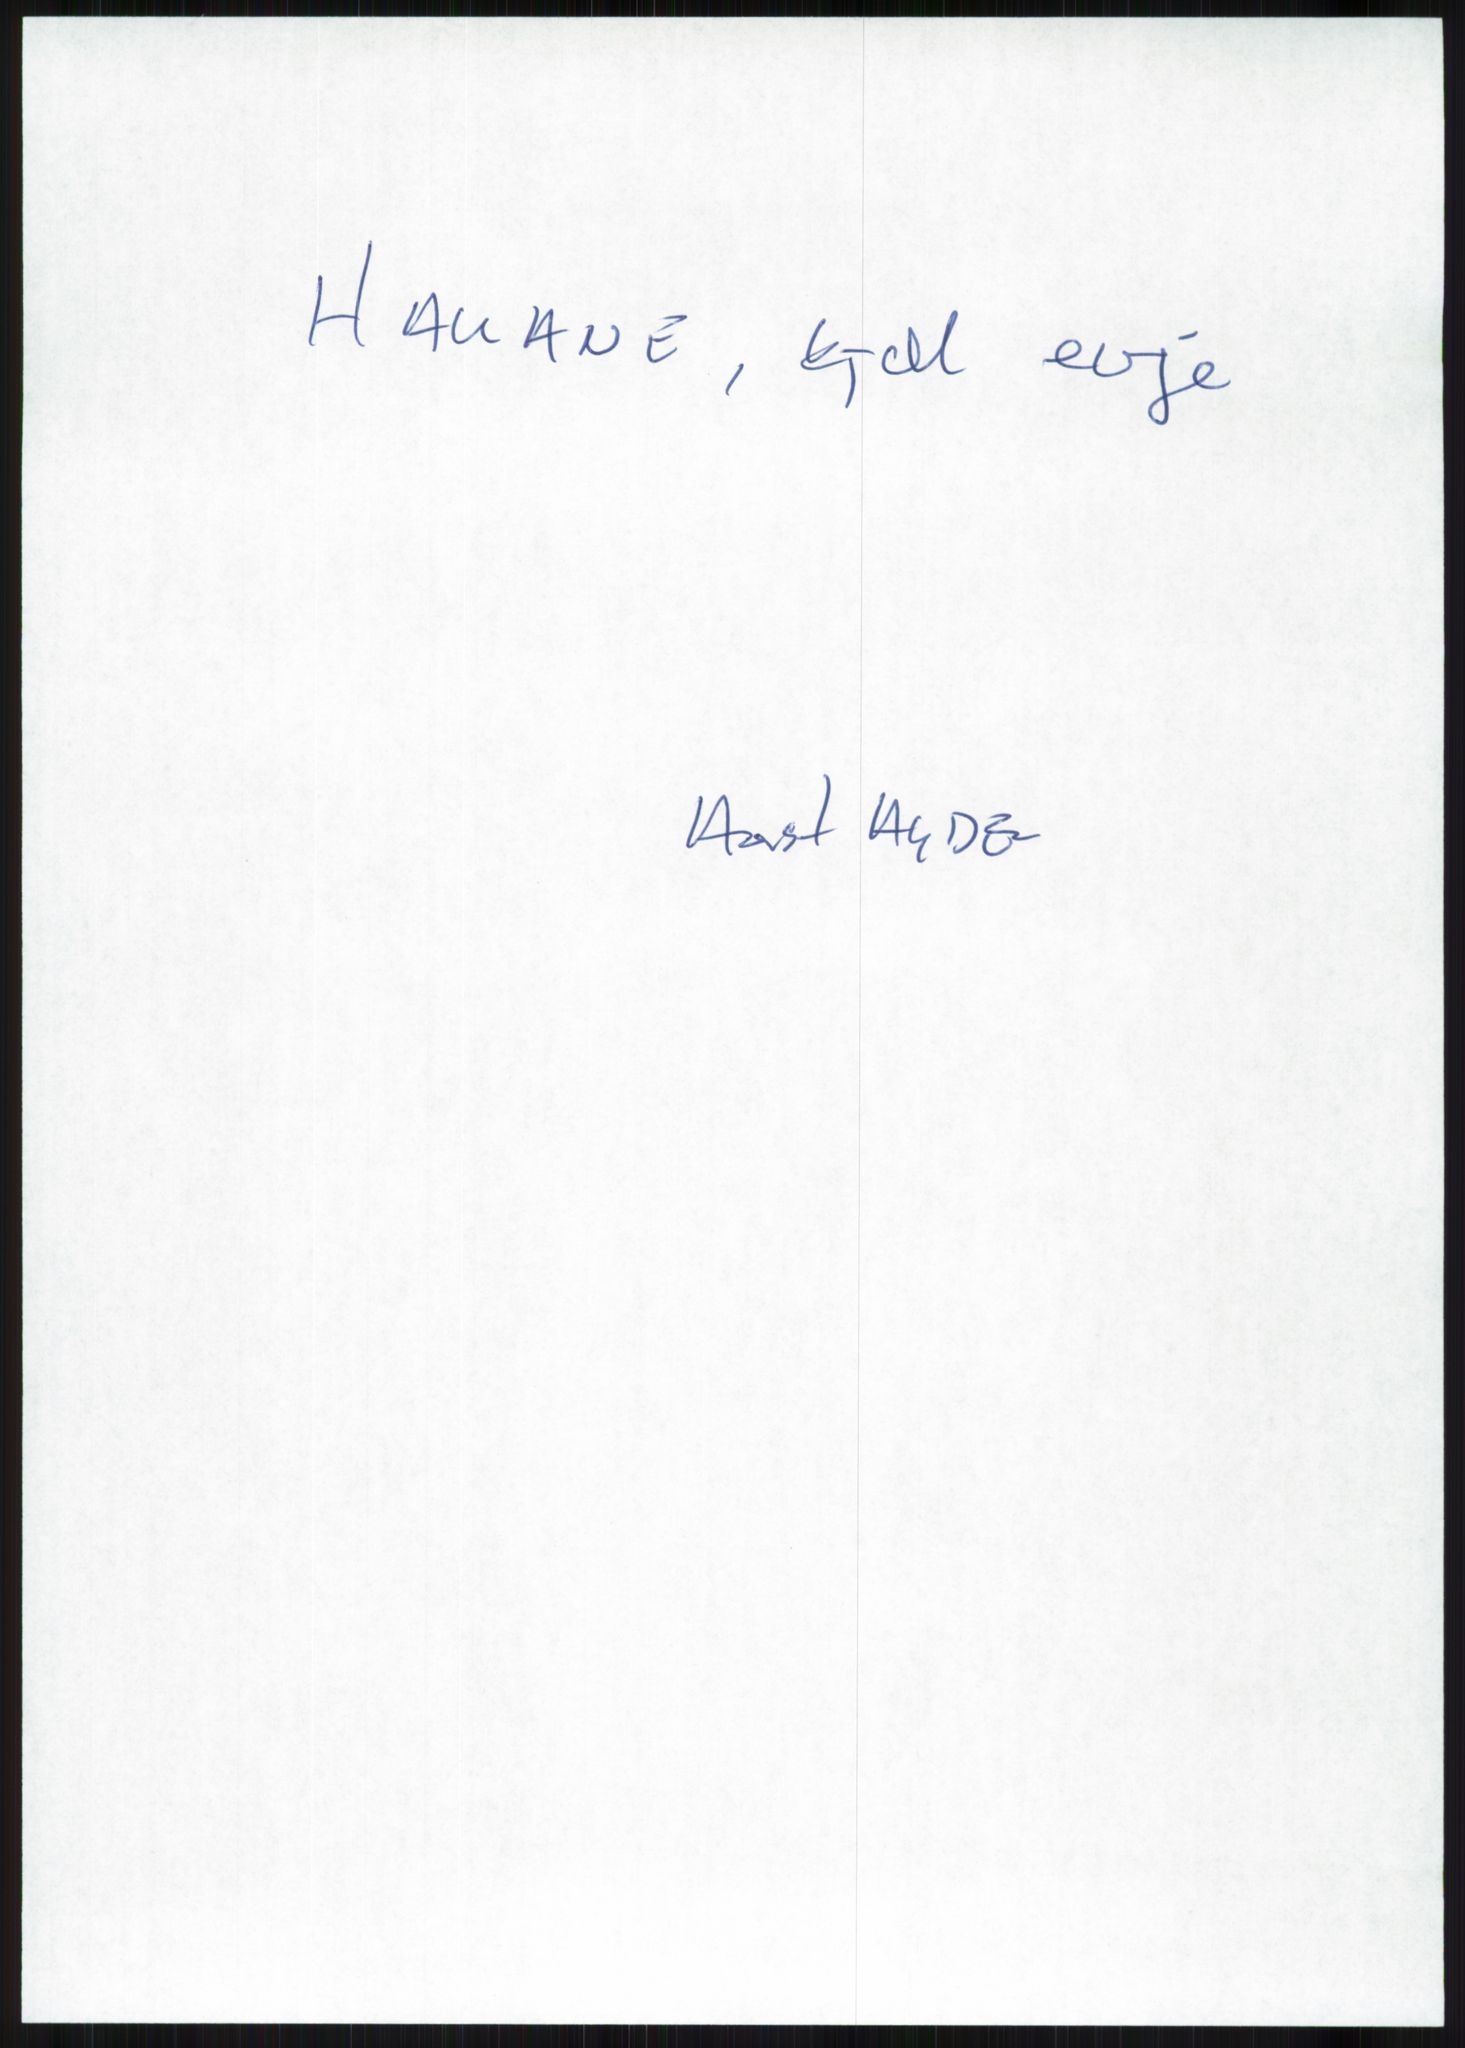 HAUANE, kjell evje
Aust AGDER